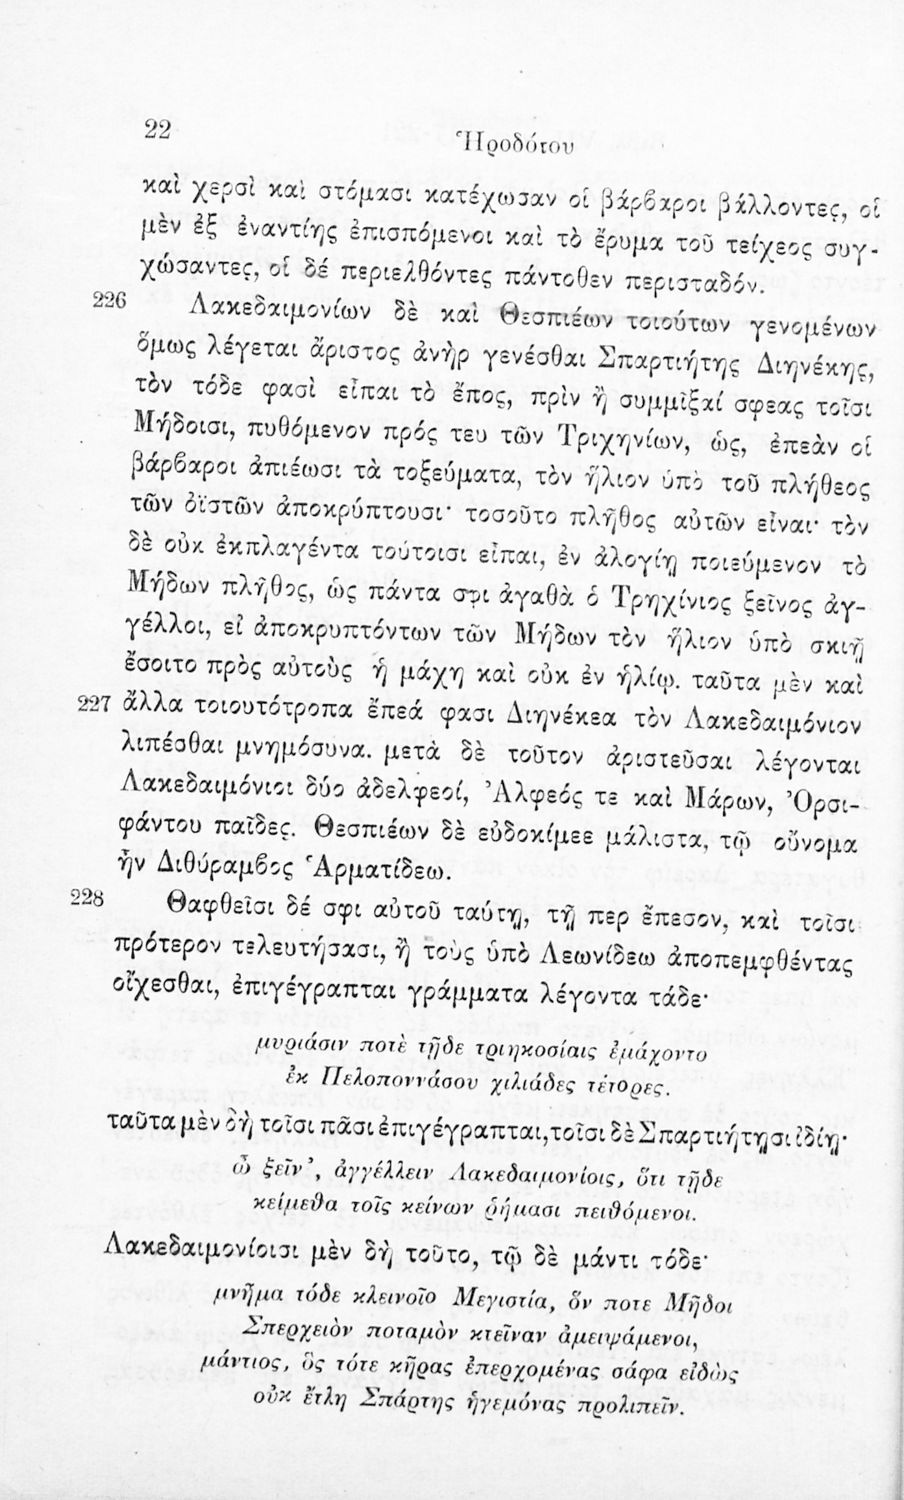 22
Ἡροδότου
καὶ χερσὶ καὶ στόμασι κατέχωσαν οἱ βάρβαροι βάλλοντες, οἱ
μὲν ἐξ ἐναντίης ἐπισπόμενοι καὶ τὸ ἔρυμα τοῦ τείχεος συγ-
χώσαντες, οἱ δέ περιελθόντες πάντοθεν περισταδόν.
226 Λακεδαιμονίων δὲ καὶ Θεσπιέων τοιούτων γενομένων
ὅμως λέγεται ἄριστος ἀνὴρ γενέσθαι Σπαρτιήτης Διηνέκης,
τὸν τόδε φασὶ εἶπαι τὸ ἔπος, πρὶν ἢ συμμῖξαί σφεας τοῖσι
Μήδοισι, πυθόμενον πρός τευ τῶν Τριχηνίων, ὡς, ἐπεὰν οἱ
βάρβαροι ἀπιέωσι τὰ τοξεύματα, τὸν ἥλιον ὑπὸ τοῦ πλήθεος
τῶν ὀϊστῶν ἀποκρύπτουσι· τοσοῦτο πλῆθος αὐτῶν εἶναι· τὸν
δὲ οὐκ ἐκπλαγέντα τούτοισι εἶπαι, ἐν ἀλογίῃ ποιεύμενον τὸ
Μήδων πλῆθος, ὡς πάντα σφι ἀγαθὰ ὁ Τρηχίνιος ξεῖνος ἀγ-
γέλλοι, εἰ ἀποκρυπτόντων τῶν Μήδων τὸν ἥλιον ὑπὸ σκιῇ
ἔσοιτο πρὸς αὐτοὺς ἡ μάχη καὶ οὐκ ἐν ἡλίῳ. ταῦτα μὲν καὶ
227 ἄλλα τοιουτότροπα ἔπεά φασι Διηνέκεα τὸν Λακεδαιμόνιον
λιπέσθαι μνημόσυνα. μετὰ δὲ τοῦτον ἀριστεῦσαι λέγονται
Λακεδαιμόνιοι δύο ἀδελφεοί, Ἀλφεός τε καὶ Μάρων, Ὀρσι-
φάντου παῖδες. Θεσπιέων δὲ εὐδοκίμεε μάλιστα, τῷ οὔνομα
ἦν Διθύραμβος Ἁρματίδεω.
228 Θαφθεῖσι δέ σφι αὐτοῦ ταύτῃ, τῇ περ ἔπεσον, καὶ τοῖσι
πρότερον τελευτήσασι, ἢ τοὺς ὑπὸ Λεωνίδεω ἀποπεμφθέντας
οἴχεσθαι, ἐπιγέγραπται γράμματα λέγοντα τάδε·
μυριάσιν ποτὲ τῇδε τριηκοσίαις ἐμάχοντο
ἐκ Πελοποννάσου χιλιάδες τέτορες.
ταῦτα μὲν δὴ τοῖσι πᾶσι ἐπιγέγραπται, τοῖσι δὲ Σπαρτιήτῃσι ἰδίῃ·
ὦ ξεῖν’, ἀγγέλλειν Λακεδαιμονίοις, ὅτι τῇδε
κείμεθα τοῖς κείνων ῥήμασι πειθόμενοι.
Λακεδαιμονίοισι μὲν δὴ τοῦτο, τῷ δὲ μάντι τόδε·
μνῆμα τόδε κλεινοῖο Μεγιστία, ὅν ποτε Μῆδοι
Σπερχειὸν ποταμὸν κτεῖναν ἀμειψάμενοι,
μάντιος, ὃς τότε κῆρας ἐπερχομένας σάφα εἰδὼς
οὐκ ἔτλη Σπάρτης ἡγεμόνας προλιπεῖν.